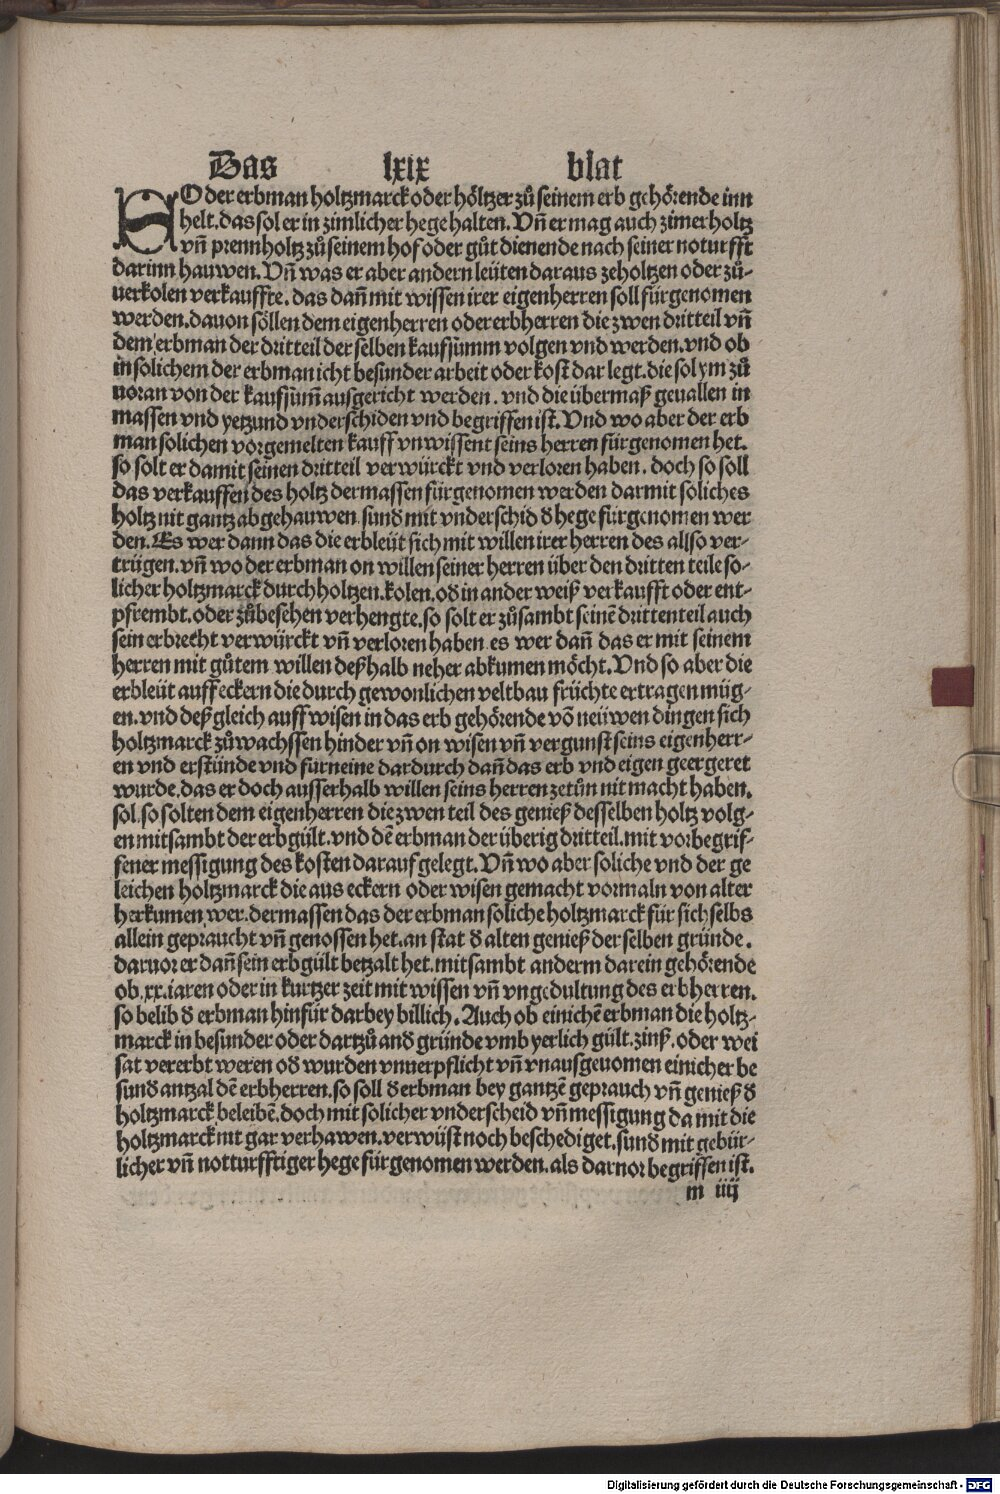 Das lxix blat
SO der erbman holtzmarck oder höltzer zů seinem erb gehörende inn
helt. das sol er in zimlicher hege halten. Vñ er mag auch zimerholtz
vñ prennholtz zů seinem hof oder gůt dienende nach seiner noturfft
darinn hauwen. Vñ was er aber andern leüten daraus zeholtzen oder zů-
uerkolen verkauffte. das dañ mit wissen irer eigenherren soll fürgenomen
werden. dauon söllen dem eigenherren oder erbherren die zwen dritteil vñ
dem erbman der dritteil der selben kaufsumm volgen vnd werden. vnd ob
in solichem der erbman icht besunder arbeit oder kost dar legt. die sol ym zů
uoran von der kaufsum̃ ausgericht werden. vnd die übermaß geuallen in
massen vnd yetzund vnderschiden vnd begriffen ist. Vnd wo aber der erb
man solichen vorgemelten kauff vnwissent seins herren fürgenomen het.
so solt er damit seinen dritteil verwürckt vnd verloren haben. doch so soll
das verkauffen des holtz dermassen fürgenomen werden darmit soliches
holtz nit gantz abgehauwen. sund mit vnderschid d hege fürgenomen wer
den. Es wer dann das die erbleüt sich mit willen irer herren des allso ver-
trügen. vñ wo der erbman on willen seiner herren über den dritten teile so-
licher holtzmarck durch holtzen. kolen. od in ander weiß verkaufft oder ent-
pfrembt. oder zůbeschen verhengte. so solt er zůsambt seinē drittenteil auch
sein erbrecht verwürckt vñ verloren haben es wer dañ das er mit seinem
herren mit gůtem willen deßhalb neher abkumen möcht. Vnd so aber die
erbleüt auff eckern die durch gewonlichen veltbau früchte ertragen müg-
en. vnd deßgleich auff wisen in das erb gehörende võ neüwen dingen sich
holtzmarck zůwachssen hinder vñ on wisen vñ vergunst seins eigenherr-
en vnd erstünde vnd fürneine dardurch dañ das erb vnd eigen geergeret
wurde. das er doch ausserhalb willen seins herren zetůn nit macht haben.
sol. so solten dem eigenherren die zwen teil des genieß desselben holtz volg-
en mitsambt der erbgült. vnd dē erbman der überig dritteil. mit vorbegrif-
fener messigung des kosten darauf gelegt. Vñ wo aber soliche vnd der ge
leichen holtzmarck die aus eckern oder wisen gemacht vormaln von alter
herkumen wer. dermassen das der erbman soliche holtzmarck für sich selbs
allein gepraucht vñ genossen het. an stat d alten genieß der selben gründe.
daruor er dañ sein erbgült betzalt het. mitsambt anderm darein gehörende
ob. xx. iaren oder in kurtzer zeit mit wissen vñ vngedultung des erbherren.
so belib d erbman hinfür darbey billich. Auch ob einichē erbman die holtz-
marck in besunder oder dartzů and gründe vmb yerlich gült. zinß. oder wei
sat vererbt weren od wurden vnuerpflicht vñ vnausgenomen einicher be
sund antzal dē erbherren. so soll d erbman bey gantzē geprauch vñ genieß d
holtzmarck beleibē. doch mit solicher vnderscheid vñ messigung da mit die
holtzmarck nit gar verhawen. verwüst noch beschediget. sund mit gebür-
licher vñ notturfftiger hege fürgenomen werden. als daruor begriffen ist.
m iiij
Digitalisierung gefördert durch die Deutsche Forschungsgemeinschaft - DFG